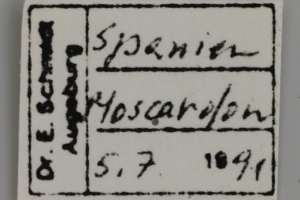 Dr. E. Schmidt
Augsburg
Spanien
Moscardon
5.7. 1991